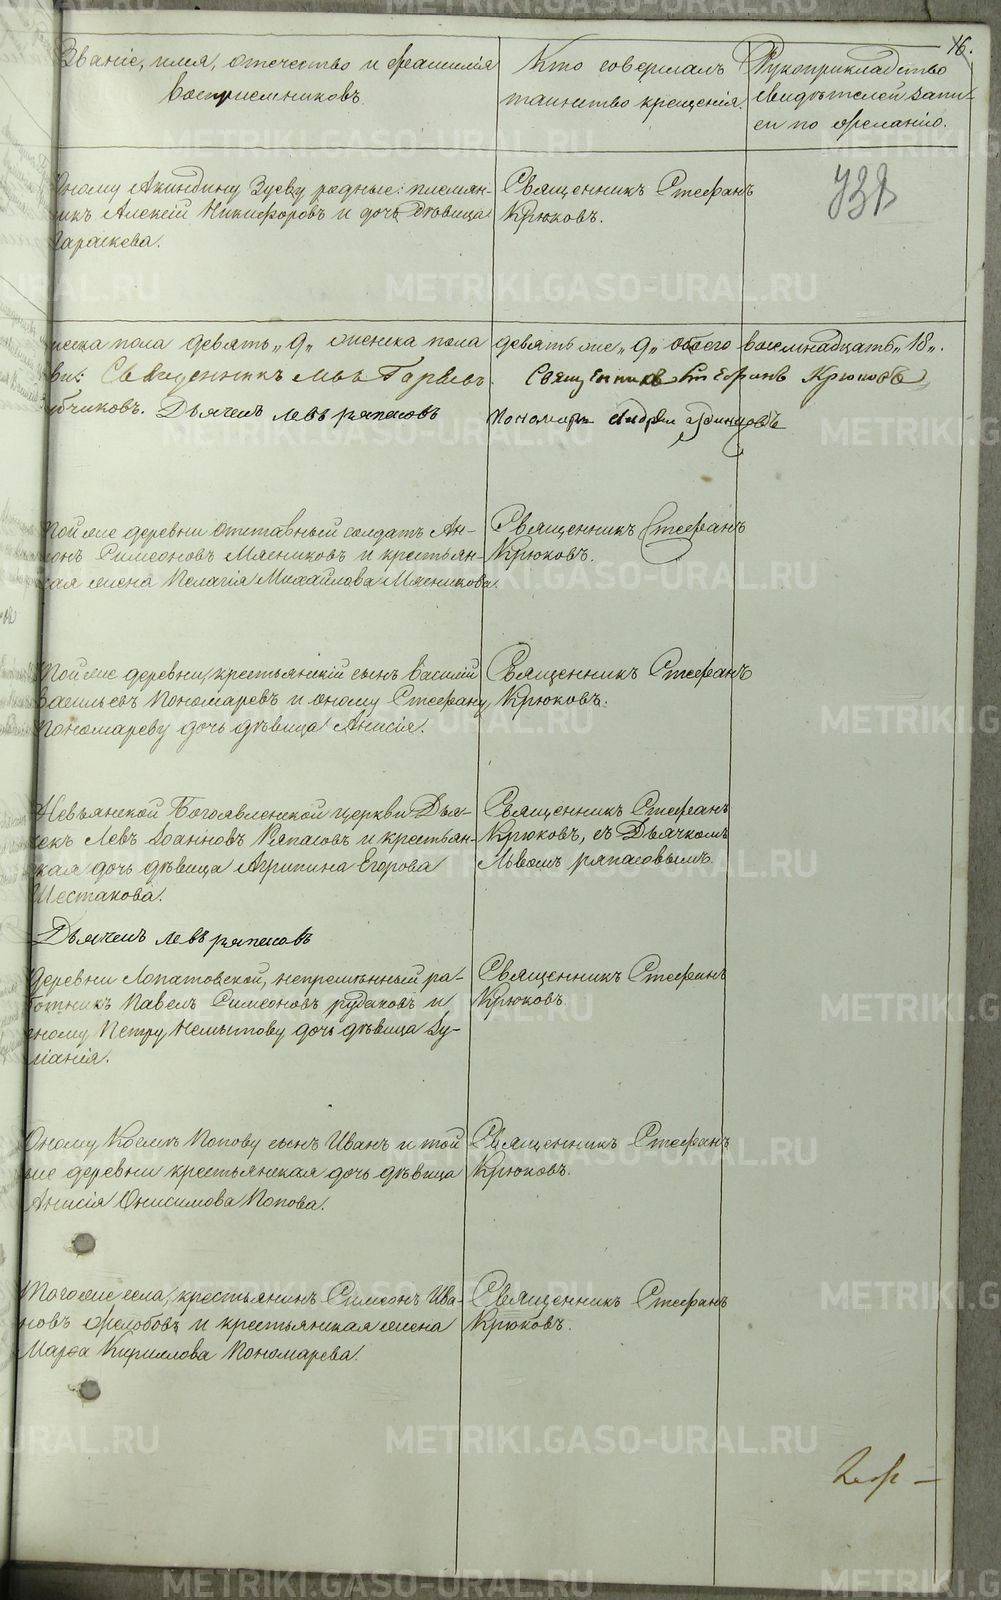 16.
Званіе, имя, отечество и фамилія
воспріемниковъ.
Кто совершалъ
таинство крещенія.
Рукоприкладство
свидѣтелей запи-
си по желанію.
Оному Акиндину Зуеву родные: племян-
никъ Алексій Никифоровъ и дочь дѣвица
Параскева.
Священникъ Стефанъ
Крюковъ.
жеска пола девять „9„ женска пола девять же „9„ обоего восемнадцать „18„.
Священникъ Левъ
Священникъ Стефанъ Крюковъ
Дьячекъ Левъ Ряпасовъ
Пономарь Андрей Одинцовъ
Той же деревни отставный солдатъ Ан-
онъ Симеоновъ Мясниковъ и крестьян-
ская жена Пелагія Михайлова Мясникова.
Священникъ Стефанъ
Крюковъ.
Той же деревни, крестьянскій сынъ Василій
Васильевъ Пономаревъ и оному Стефану
Пономареву дочь дѣвица Анисія.
Священникъ Стефанъ
Крюковъ.
Невьянской Богоявленской церкви Дья-
чекъ Левъ Іоанновъ Ряпасовъ и крестьян-
ская дочь дѣвица Агрипина Егорова
Шестакова.
Священникъ Стефанъ
Крюковъ, съ Дьячкомъ
Львомъ Ряпасовымъ.
Дьячекъ Левъ Ряпасовъ
Деревни Лопатовской, непремѣнный ра-
ботникъ Павелъ Симеоновъ Рудаковъ и
оному Петру Немытову дочь дѣвица Іу-
ліанія.
Священникъ Стефанъ
Крюковъ.
Оному Козьмѣ Попову сынъ Иванъ и той
же деревни крестьянская дочь дѣвица
Анисія Онисимова Попова.
Священникъ Стефанъ
Крюковъ.
Того же села, крестьянинъ Симеонъ Ива-
новъ Жолобовъ и крестьянская жена
Марфа Кирилова Пономарева.
Священникъ Стефанъ
Крюковъ.
METRIKI.GASO-URAL.RU